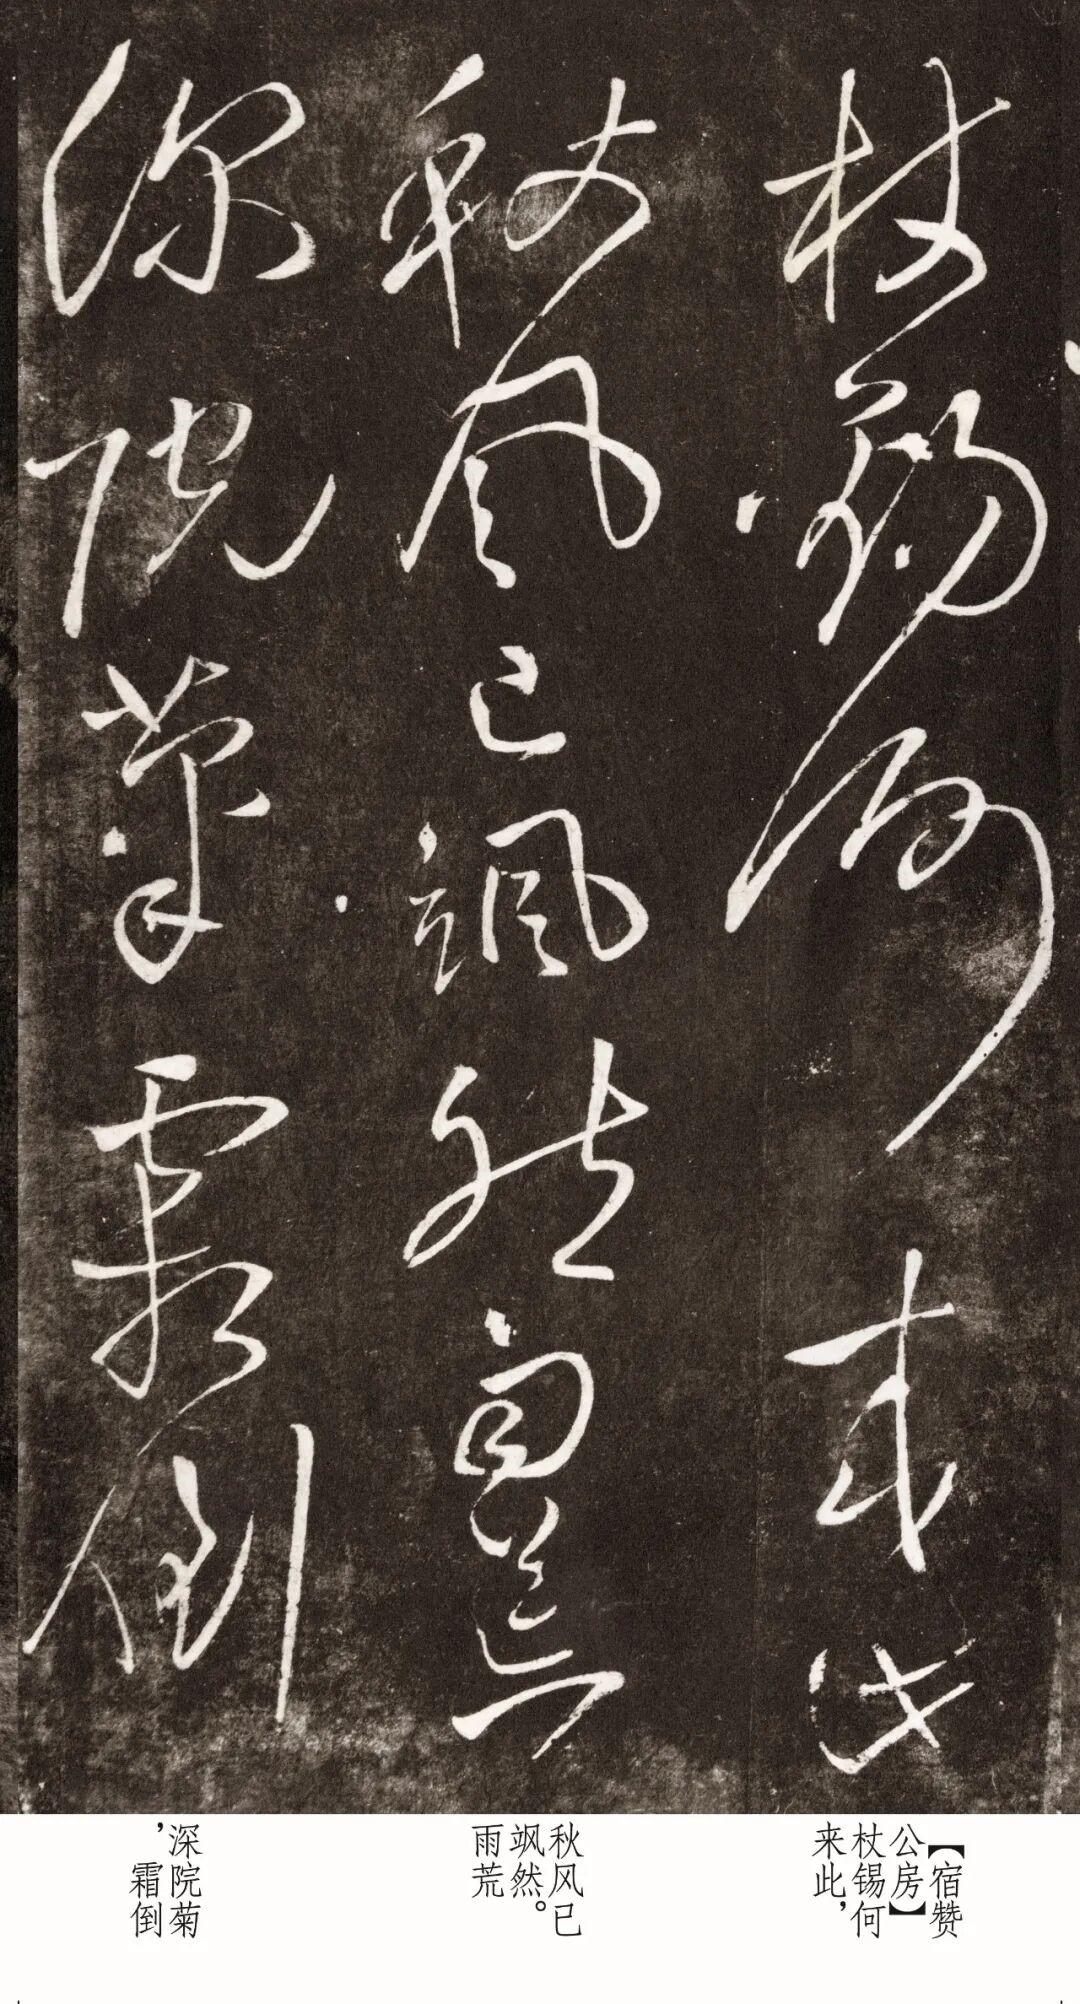 杖锡何来此
秋风已飒然雨荒
深院菊霜倒
【宿赞
公房】
杖锡何
来此，
秋风已
飒然。
雨荒
深院菊
，霜倒